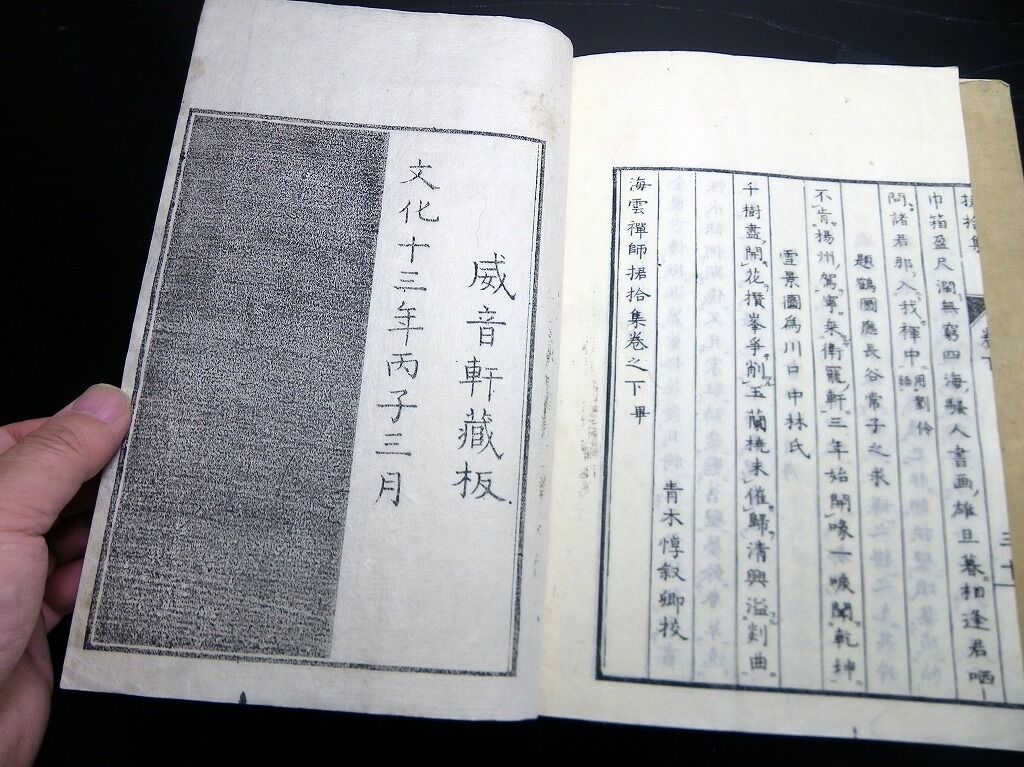 拾集
卷下
巾箱盈尺濶無窮四海騷人書画雄旦暮相逢君哂
問諸君那入我褌中用劉伶語
題鶴圖應長谷常子之求
不肯揚州駕寧乗衛寵軒三年始開喙一唳聞乾坤
雪景圖爲川口中林氏
千樹盡開花攅峯爭削玉蘭橈未催歸清興溢剡曲
青木惇叙卿校
海雲禪師捃拾集卷之下畢
威音軒藏板
文化十三年丙子三月